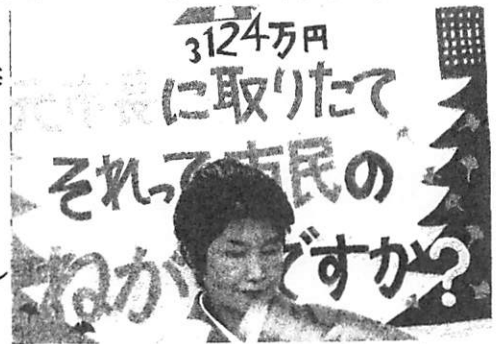 3124万円
元市長に取りたて
それって市民の
ねが ですか?